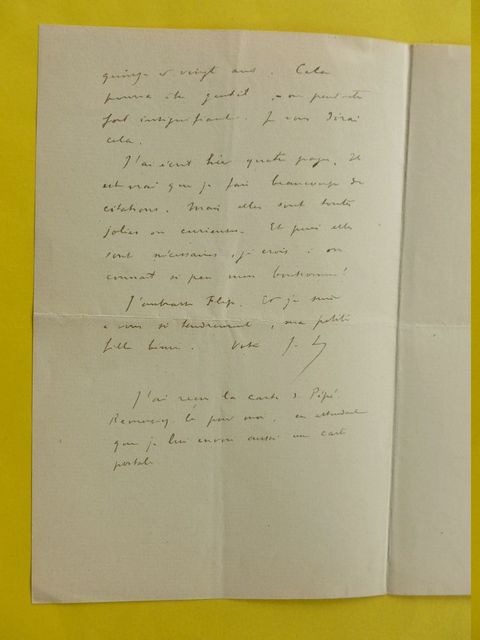 quinze et vingt ans. Cela
pourra être gentil, ou peut-être
fort insignifiant. Je vous dirai
cela.
J'ai écrit hier quatre pages. Il
est vrai que je fais beaucoup de
citations. Mais elles sont toutes
jolies ou curieuses. Et puis elles
sont nécessaires, je crois : on
connaît si peu mon bonhomme !
J'embrasse Flip. Et je suis
à vous si tendrement, ma petite
fille bonne. Votre J. L
J'ai reçu la carte de Pépé.
Remerciez-le pour moi, en attendant
que je lui envoie aussi une carte
postale